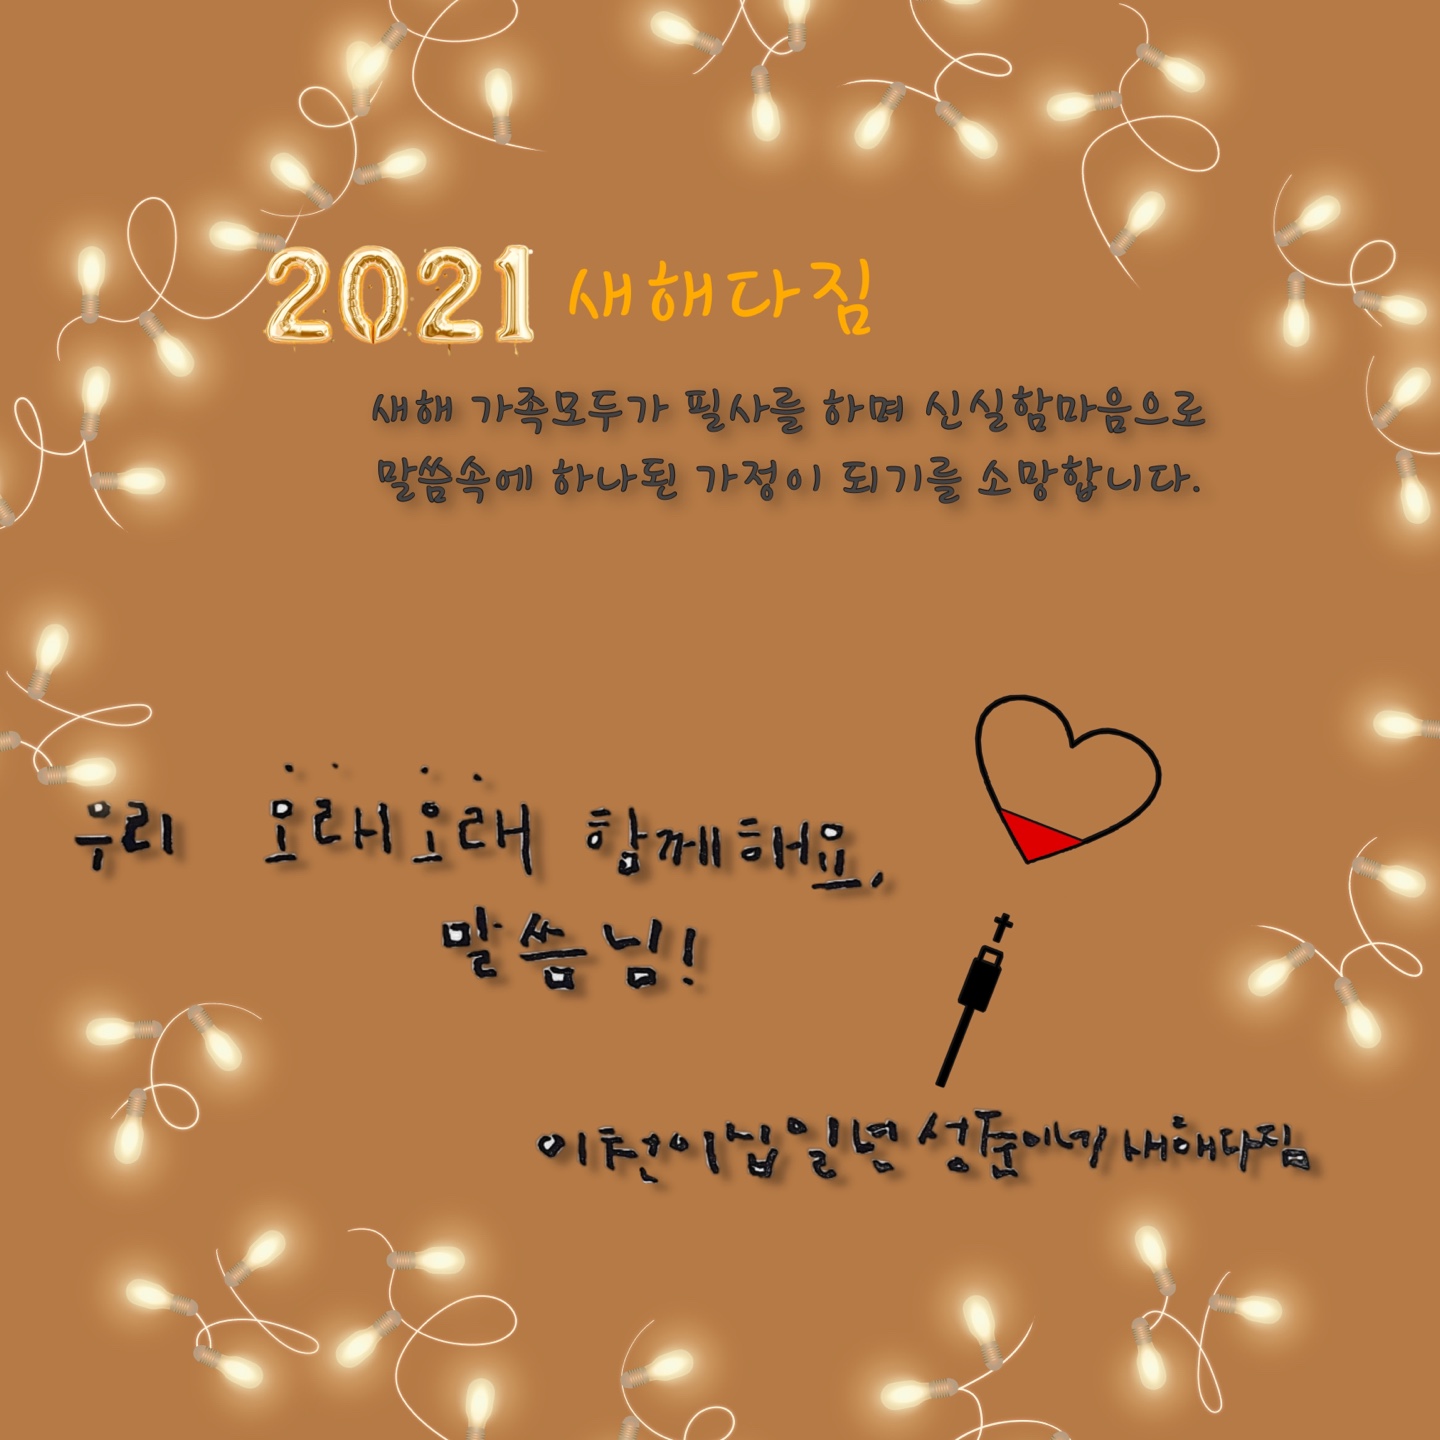 2021 새해다짐
새해 가족모두가 필사를 하며 신실함마음으로
말씀속에 하나된 가정이 되기를 소망합니다.
우리 오래오래 함께해요,
말씀님!
이천이십일년 성준이네 새해다짐